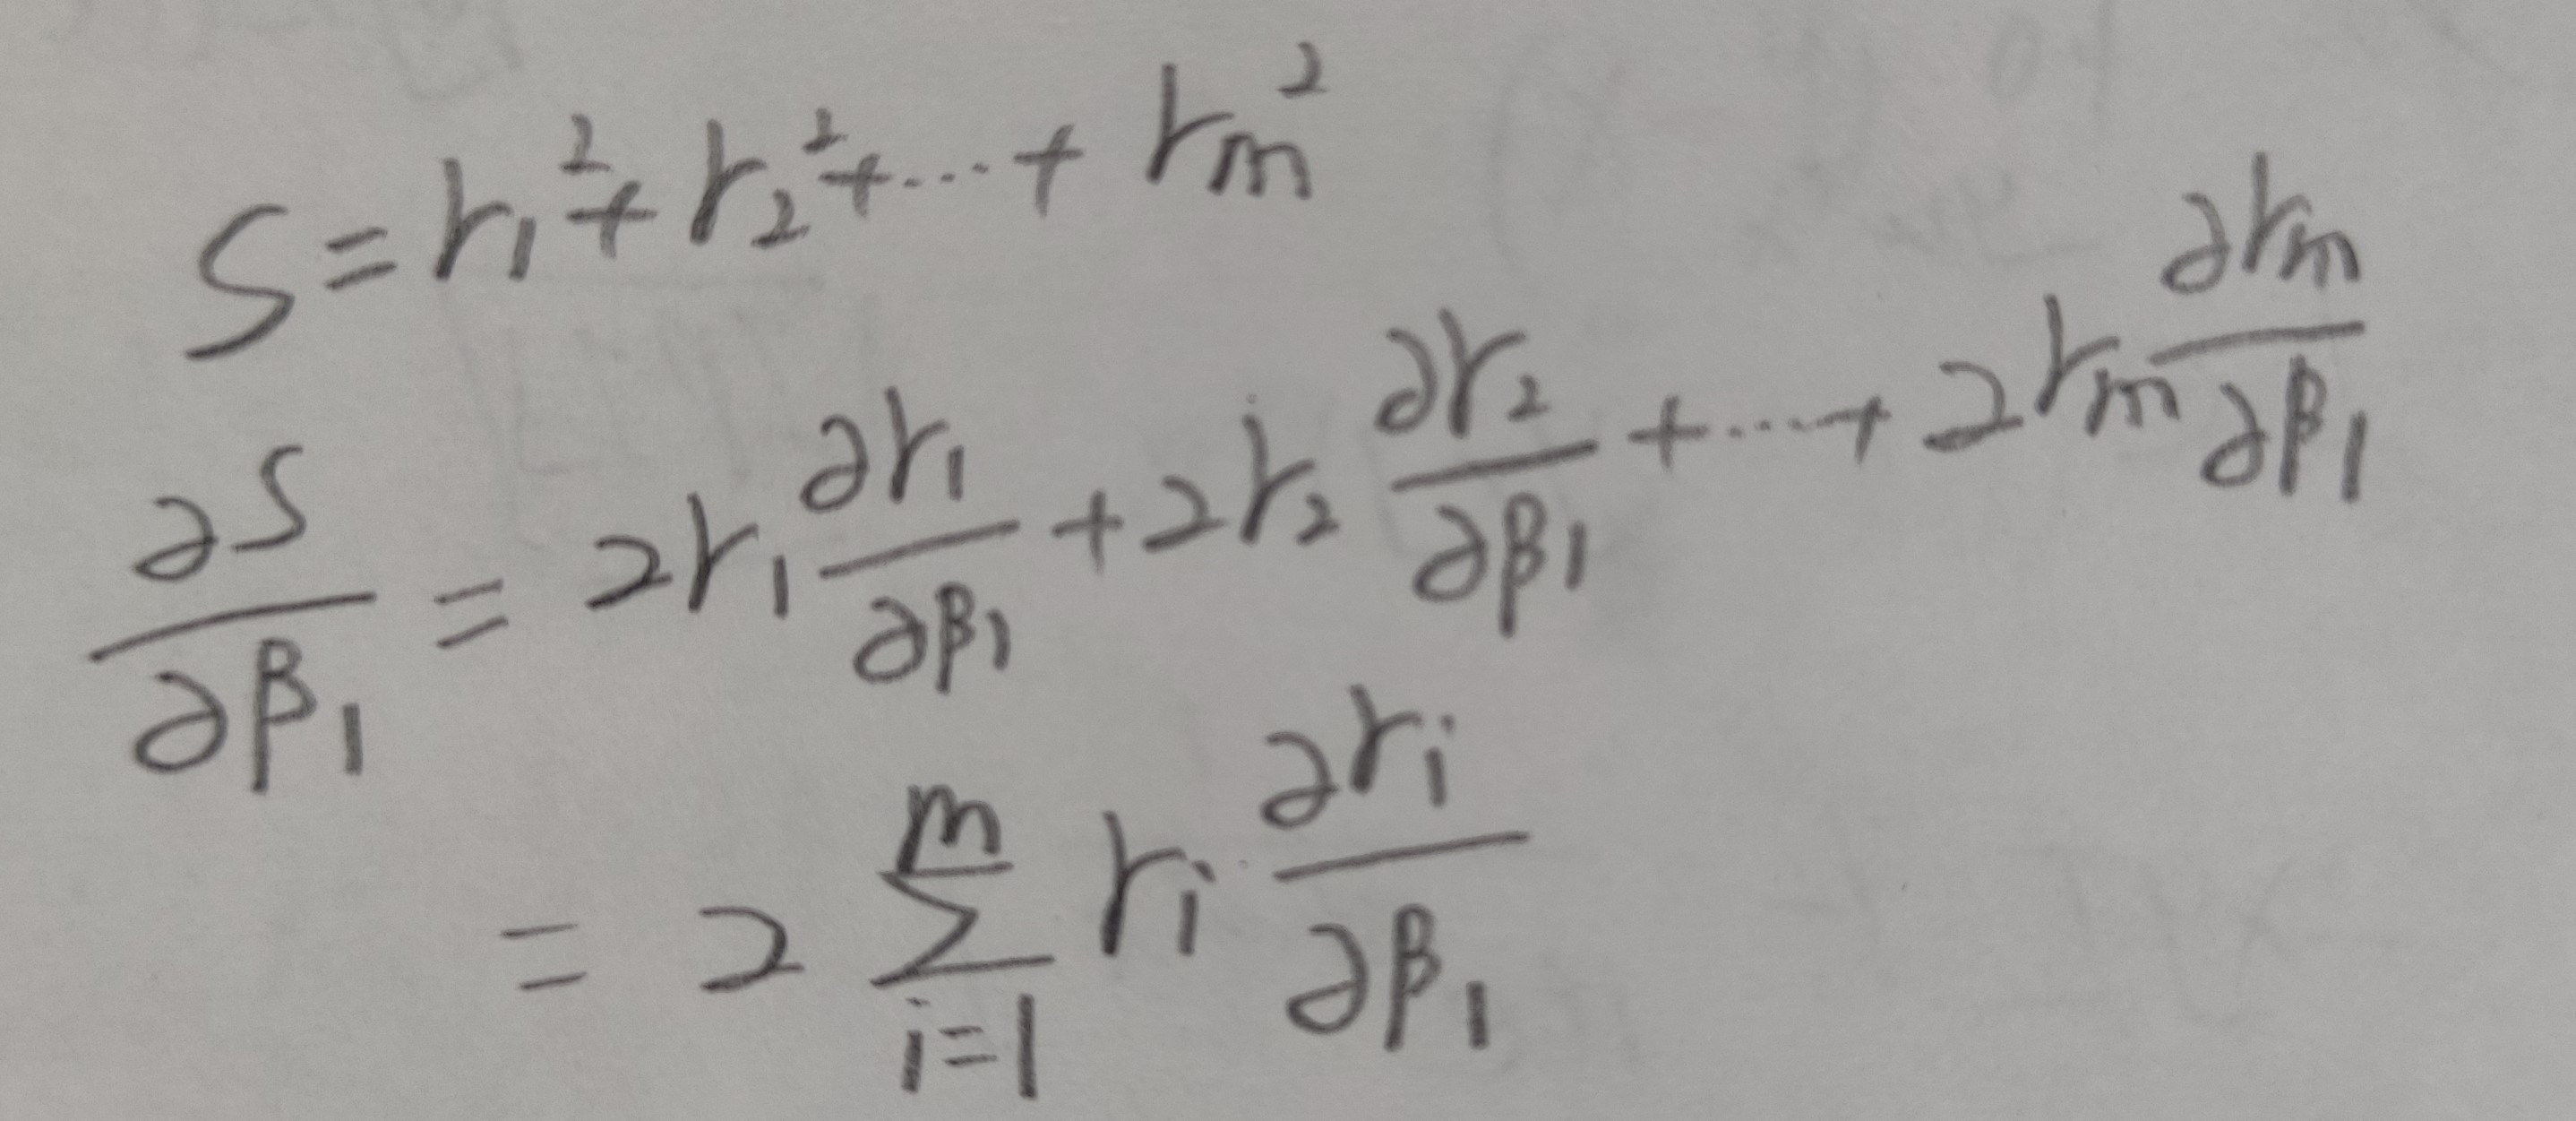 S = r₁² + r₂² + ... + rₘ²
∂S/∂β₁ = 2r₁ ∂r₁/∂β₁ + 2r₂ ∂r₂/∂β₁ + ... + 2rₘ ∂rₘ/∂β₁
= 2 ∑_{i=1}^{m} rᵢ ∂rᵢ/∂β₁